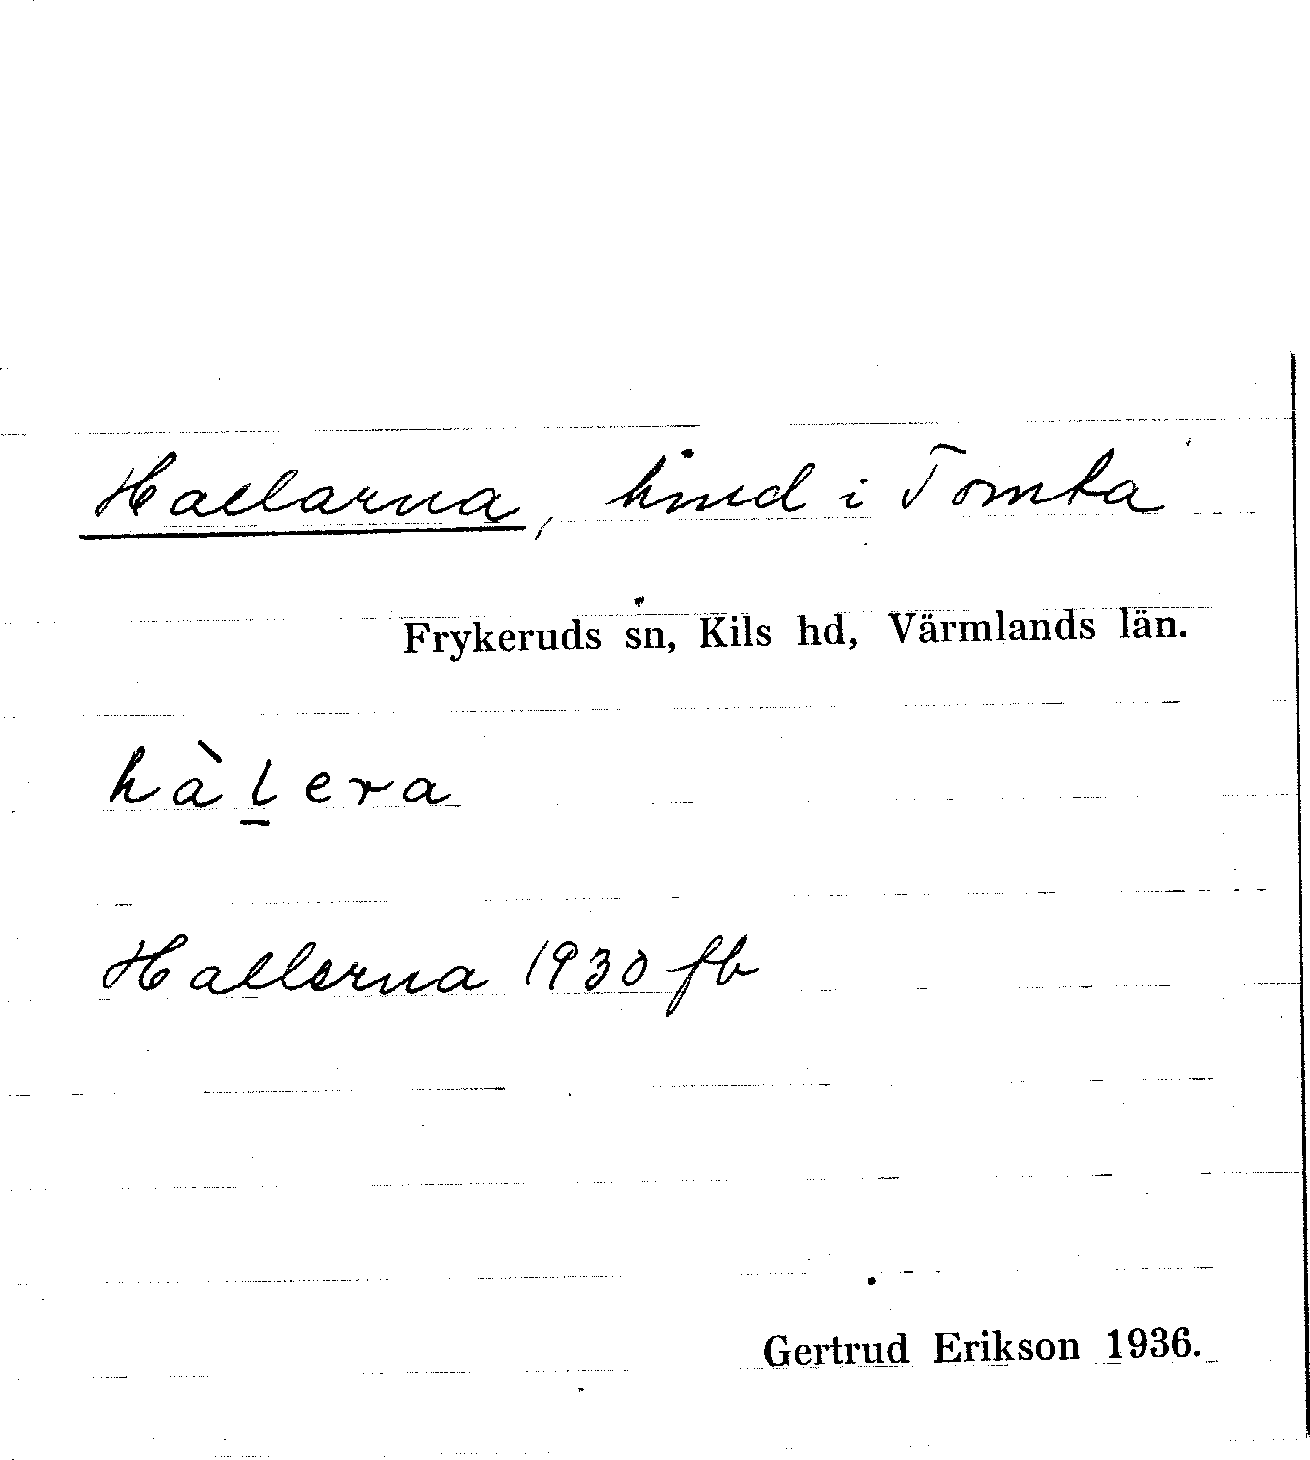 Hallarna, hmd i Tomta
Frykeruds sn, Kils hd, Värmlands län.
hàl̠era
Hallerna 1930 fb
Gertrud Erikson 1936.